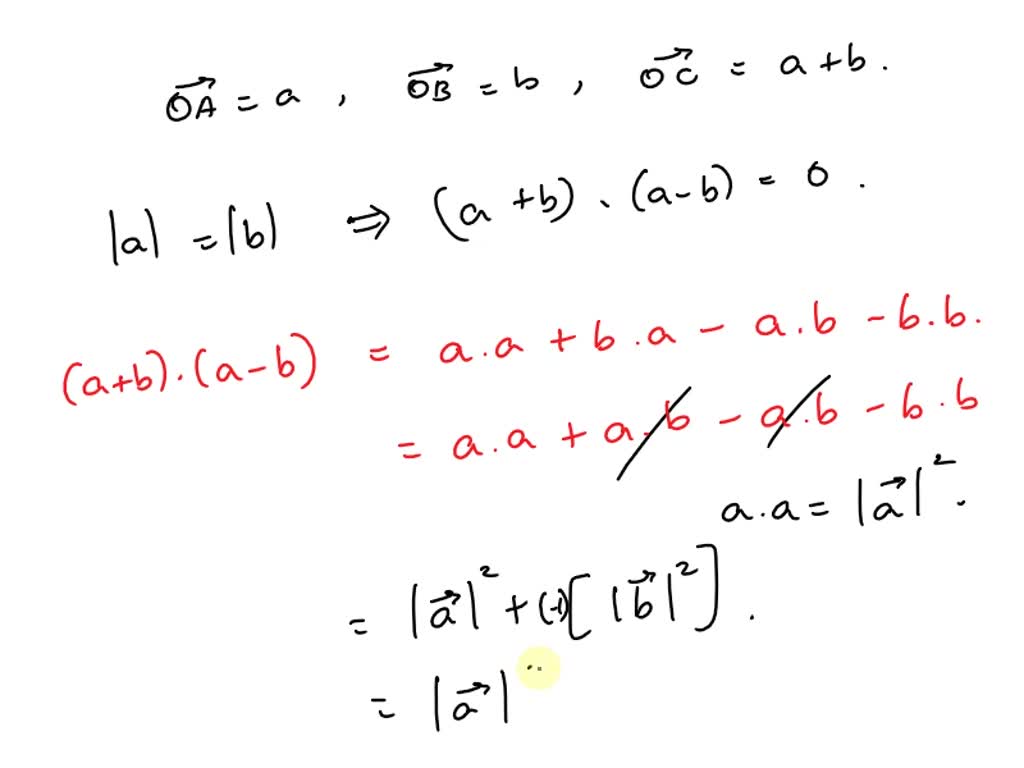 →OA = a , →OB = b , →OC = a + b .
|a| = |b| ⇒ (a + b) . (a - b) = 0 .
(a+b) . (a-b) = a.a + b.a - a.b - b.b.
= a.a + a.b - a.b - b.b
a.a = |→a|² .
= |→a|² + (-1)[|→b|²] .
= |→a|